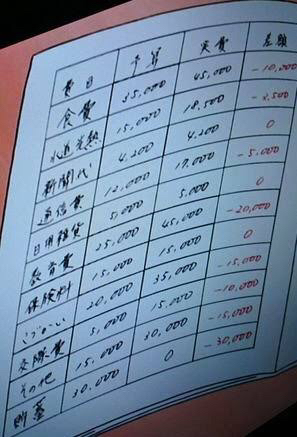 費目 予算 実費 差額
食費 35,000 45,000 -10,000
水道光熱 15,000 18,500 -3,500
新聞代 4,200 4,200 0
通信費 12,000 17,000 -5,000
日用雑貨 5,000 5,000 0
教育費 25,000 45,000 -20,000
保険料 15,000 15,000 0
こづかい 20,000 35,000 -15,000
交際費 5,000 15,000 -10,000
その他 15,000 30,000 -15,000
貯蓄 30,000 0 -30,000